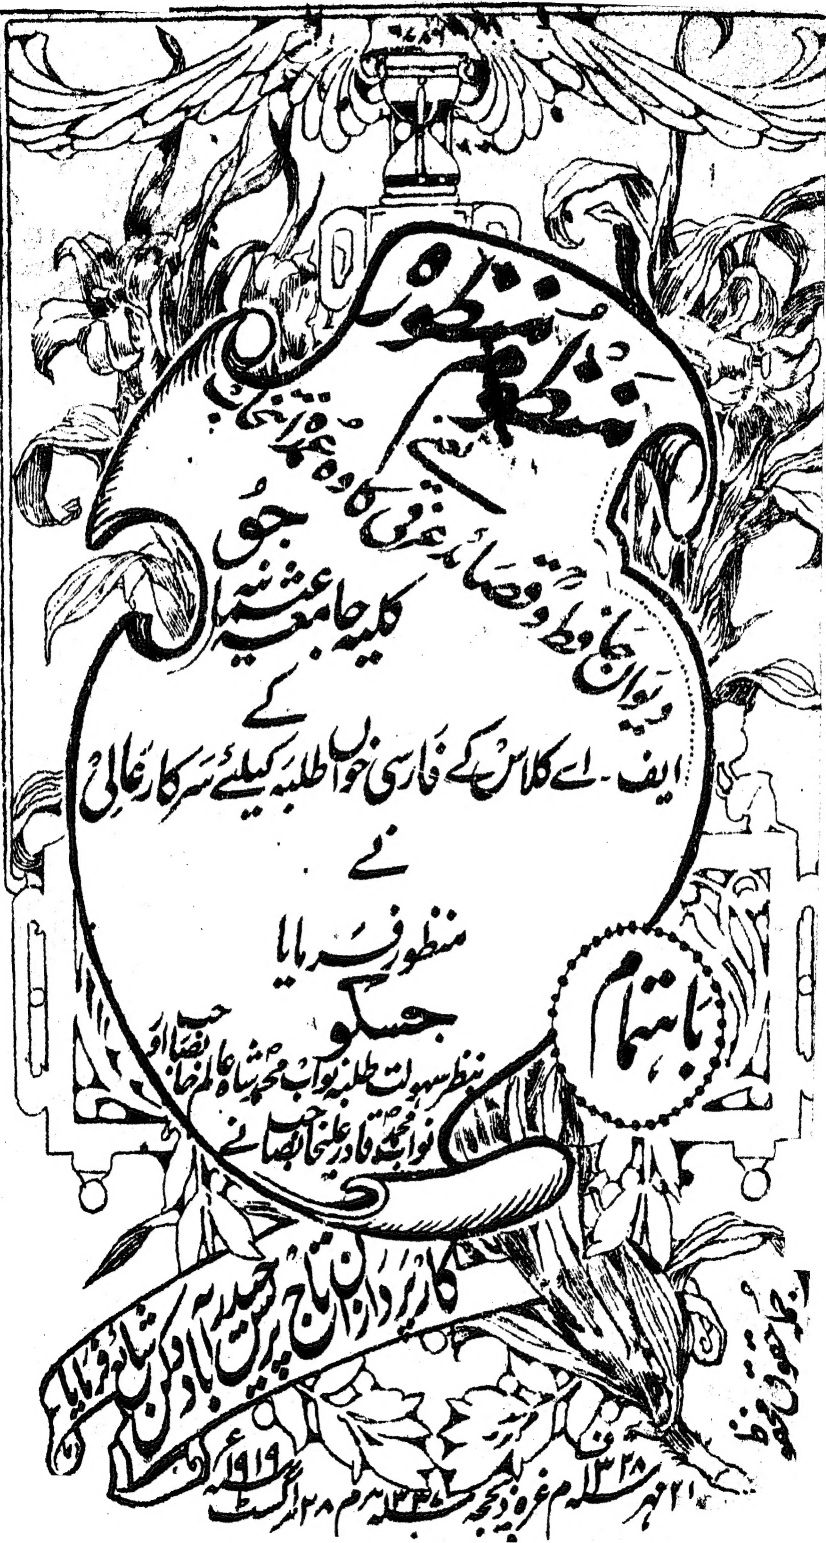 ۷۸۶
منظومۂ منظورہ
یعنے
دیوان حافظ و قصائد عرفی کا وہ عمدہ انتخاب
جو
کلیہ جامعہ عثمانیہ
کے
ایف۔اے کلاس کے فارسی خواں طلبہ کیلئے سرکار عالی
نے
منظور فرمایا
جسکو
بنظر سہولت طلبہ نواب محمد شاہ عالم خانصاحب اور
نواب محمد قادر علیخانصاحب نے
باہتمام
کارپردازان تاج پریس حیدرآباد دکن شائع فرمایا
جملہ حقوق محفوظ
۲۱ مہر ۱۳۲۸ ف م غرہ ذیحجہ ۱۳۳۷ ھ م ۲۸ اگسٹ ۱۹۱۹ ء